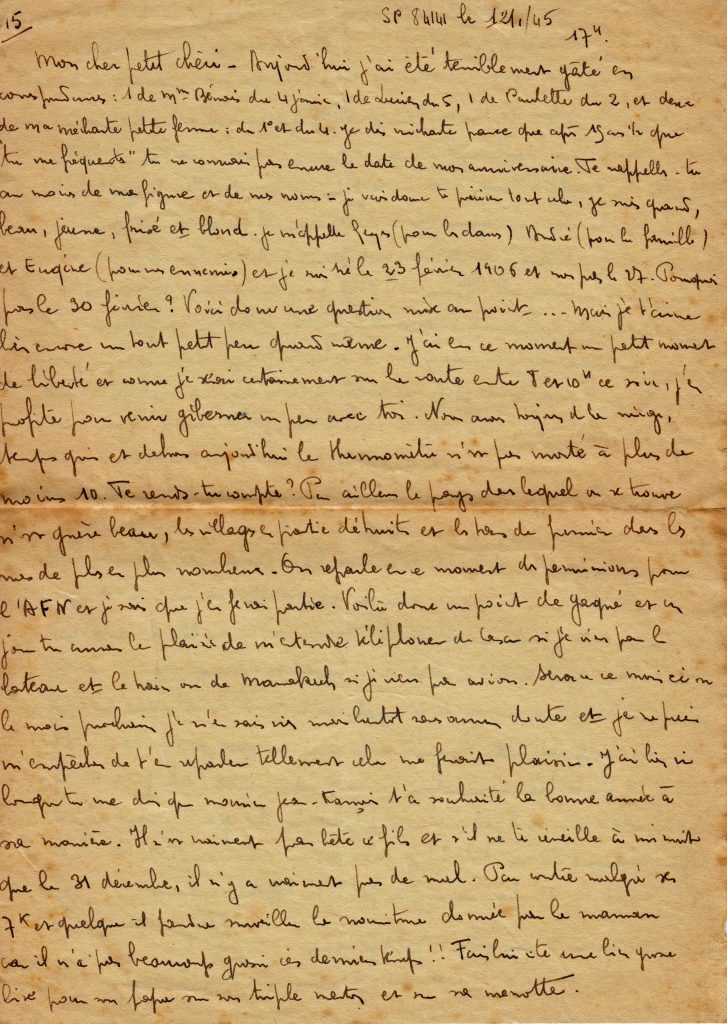 15
SP 84141 le 12/1/45
17h.
Mon cher petit chéri - Aujourd'hui j'ai été terriblement gâté en
correspondances : 1 de Mme Bénois du 4 janvier, 1 de Lucien du 5, 1 de Paulette du 2, et deux
de ma méchante petite femme : du 1er et du 4. Je dis méchante parce que après 19 ans que
"tu me fréquente" tu ne connais pas encore la date de mon anniversaire. Te rappelles-tu
au moins de ma figure et de mes noms - je vais donc te préciser tout cela, je suis grand,
beau, jeune, frisé et blond. Je m'appelle Guy (pour les dames) André (pour la famille)
et Eugène (pour mes ennemis) et je suis né le 23 février 1906 et non pas le 27. Pourquoi
pas le 30 février ? Voici donc une question mise au point ... Mais je t'aime
bien encore un tout petit peu quand même. J'ai en ce moment un petit moment
de liberté et comme je serai certainement sur la route entre 7 et 10h ce soir, j'en
profite pour venir giberner un peu avec toi. Nous avons toujours de la neige,
temps gris et dehors aujourd'hui le thermomètre n'est pas monté à plus de
moins 10. Te rends-tu compte ? Par ailleurs le pays dans lequel on se trouve
n'est guère beau, les villages en partie détruits et les tas de fumier dans les
rues de plus en plus nombreux. On reparle en ce moment de permissions pour
l'AFN et je sais que j'en ferai partie. Voilà donc un point de gagné et un
jour tu auras le plaisir de m'entendre téléphoner de Casa si je viens par le
bateau et le train ou de Marrakech si je viens par avion. Sera-ce ce mois ci ou
le mois prochain je n'en sais rien mais bientôt sans aucun doute et je ne puis
m'empêcher de t'en reparler tellement cela me ferait plaisir. J'ai bien ri
lorsque tu me dis que monsieur Jean-François t'a souhaité la bonne année à
sa manière. Il n'est vraiment pas bête ce fils et s'il ne te réveille à minuit
que le 31 décembre, il n'y a vraiment pas de mal. Par contre malgré ses
7K et quelque il faudra surveiller la nourriture donnée par la maman
car il n'a pas beaucoup grossi ces derniers temps !! Fais lui vite une bien grosse
bise pour son papa sur son triple menton et sur sa menotte.